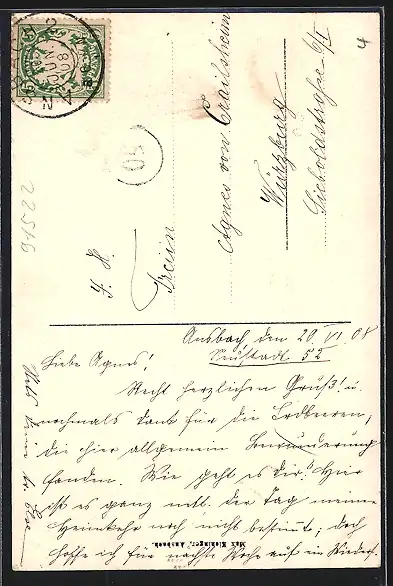 I. H.
Freiin
Agnes von Crailsheim
Würzburg
Sieboldstraße 6/I
4
50
22516
Ansbach, den 20. VI. 08
Neustadt 52
Liebe Agnes!
Recht herzlichen Gruß! u.
nochmals Dank für die Erdbeeren,
die hier allgemein Bewunderung
fanden. Wie geht es dir? Hier
ist es ganz nett. Der Tag meiner
Heimkehr noch nicht bestimmt; doch
hoffe ich für nächste Woche auf ein Wieder
Max Eichinger, Ansbach.